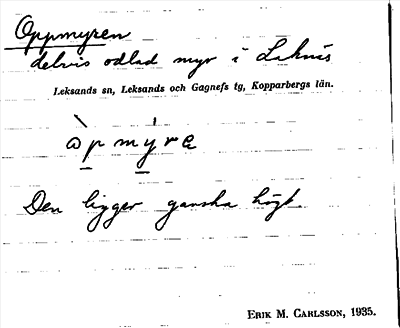 Oppmyren
delvis odlad myr i Laknäs
Leksands sn, Leksands och Gagnefs tg, Kopparbergs län.
òpmýrɐ
Den ligger ganska högt
ERIK M. CARLSSON, 1935.